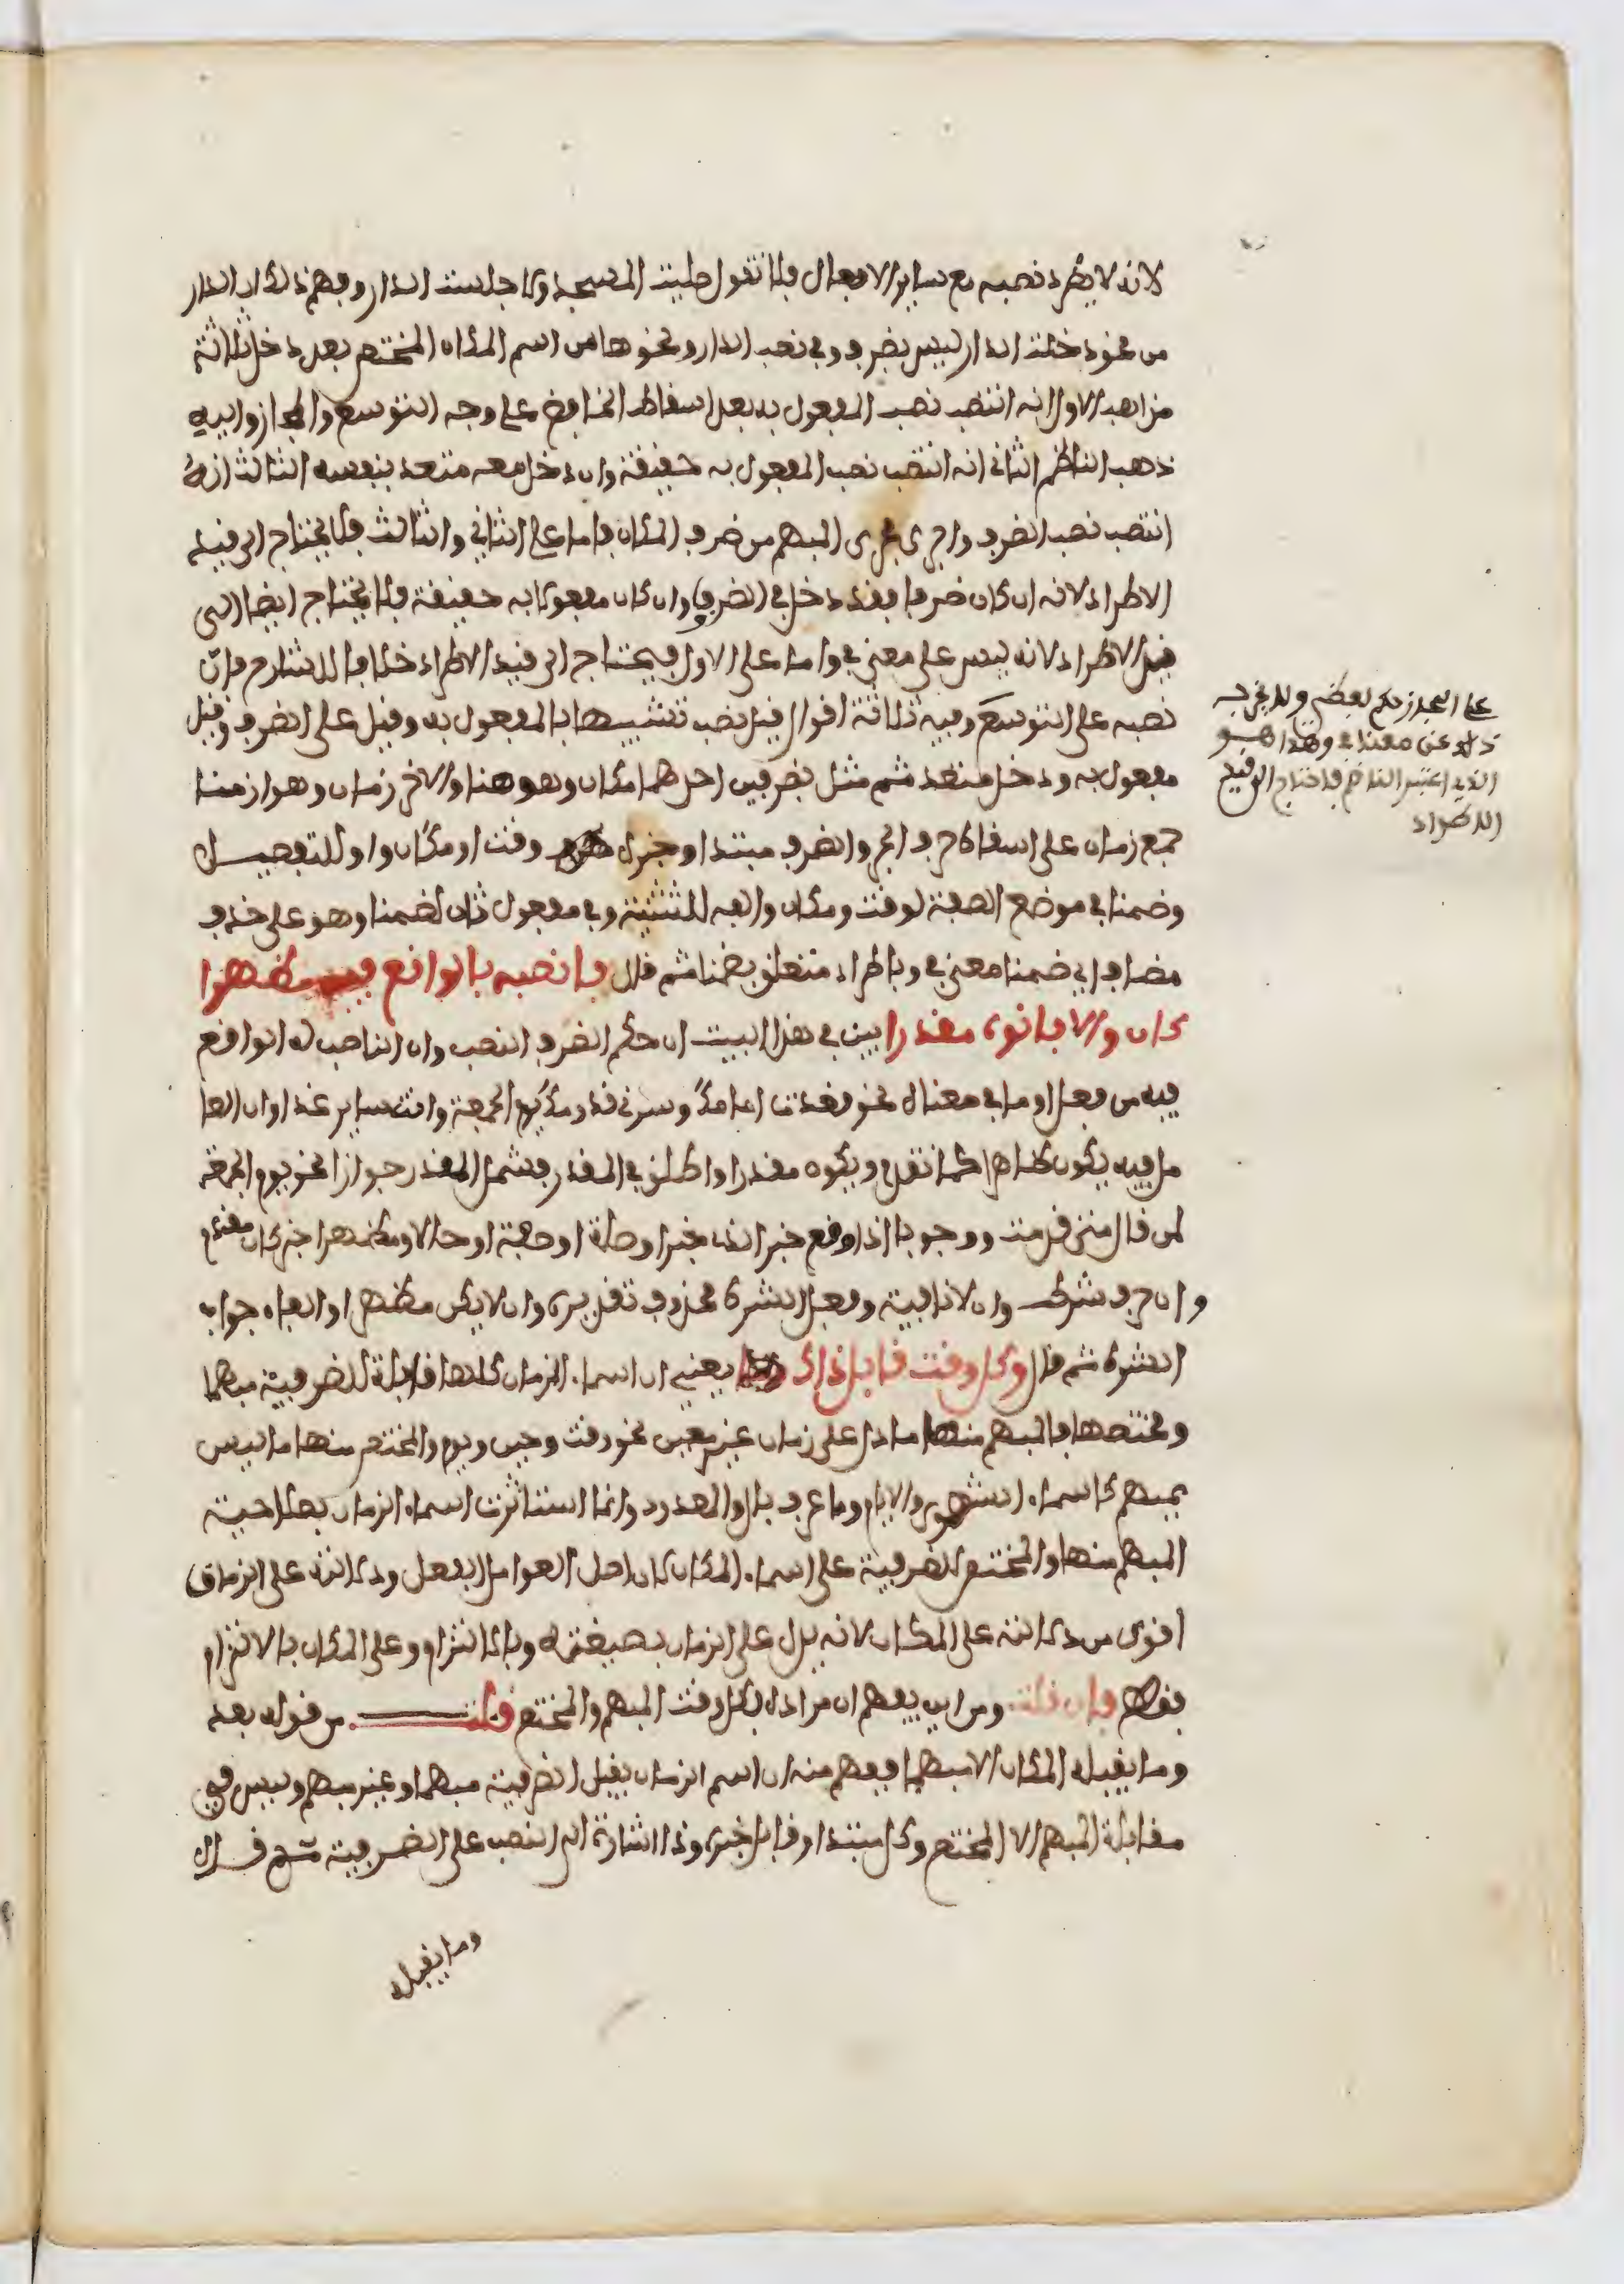 لانه لا يطرد نصبه مع ساير الافعال فلا تقول صليت المسجد ولا جلست الدار وفهم ذلك ان الدار
من نحو دخلت الدار ليس بضرف وفي نصب الدار ونحوها من اسم المكان المختص بعد دخل ثلاثة
مذاهب الاول انه انتصب نصب المفعول به بعد اسقاط الخافض على وجه التوسع والمجاز واليه
ذهب الناظم الثاني انه انتصب نصب المفعول به حقيقة وان دخل معه متعد بنفسه الثالث انه
انتصب نصب الضرف واجرى مجرى المبهم من ضرف المكان فاما على الثاني والثالث فلا يحتاج الى قيد
الاطراد لانه ان كان ضرفا فقد دخل في الضروف وان كان مفعولا به حقيقة فلا يحتاج ايضا الى
قيد الاطراد لانه ليس على معنى في واما على الاول فيحتاج الى قيد الاطراد خلافا للشارح فان
نصبه على التوسع وفيه ثلاثة اقوال قيل نصب تشبيها بالمفعول به وقيل على الضرف وقيل
مفعول به ودخل متعد ثم مثل بضرفين احدهما مكان وهو هنا والاخر زمان وهو ازمنا
جمع زمان على اسقاط حرف الجر والضرف مبتدا وخبره وقت او مكان واو للتفصيل
وضمنا في موضع الصفة لوقت ومكان والفه للتثنية وفي مفعول ثان لضمنا وهو على حذف
مضاف اي ضمنا معنى في وباطراد متعلق بضمنا ثم قال فانصبه بالواقع فيه مظهرا
كان والا فانوه مقدرا بين في هذا البيت ان حكم الضرف النصب وان الناصب له الواقع
فيه من فعل او ما في معناه نحو قعدت امامك وسرني قدومك يوم الجمعة وانت ساير غدا وان العا
مل فيه يكون ظاهرا كما تقدم ويكون مقدرا واطلق في المقدر فشمل المقدر جوازا نحو يوم الجمعة
لمن قال متى قدمت ووجوبا اذا وقع خبر الذي خبر او صلة او صفة او حالا ومظهرا خبر كان مقدم
وان حرف شرط وان لا نافية وفعل الشرط محذوف تقديره وان لا يكن مظهرا والفاء جواب
الشرط ثم قال وكل وقت قابل ذاك يعني ان اسماء الزمان كلها قابلة للضرفية مبهما
ومختصها فالمبهم منها ما دل على زمان غير معين نحو وقت وحين ويوم والمختص منها ما ليس
بمبهم كاسماء الشهور والايام وما عرف بال والمعدود وانما استاثرت اسماء الزمان بصلاحية
المبهم منها والمختص للضرفية على اسماء المكان لان اصل العوامل الفعل ودلالته على الزمان
اقوى من دلالته على المكان لانه يدل على الزمان بصيغته وبالالتزام وعلى المكان بالالتزام
فقط فان قلت ومن اين يفهم ان مراده بكل وقت المبهم والمختص قلت من قوله بعد
وما يقبله المكان الا مبهما فيفهم منه ان اسم الزمان يقبل الضرفية مبهما او غير مبهم وليس في
مقابلة المبهم الا المختص وكل مبتدا وقابل خبره وذا اشارة الى النصب على الضرفية ثم قال
وما يقبله
على المجاز نعم بعضهم ولا يخرجه
ذلك عن معنى في وهذا هو
الذي اعتبر الناظم فاحتاج الى قيد
الاطراد